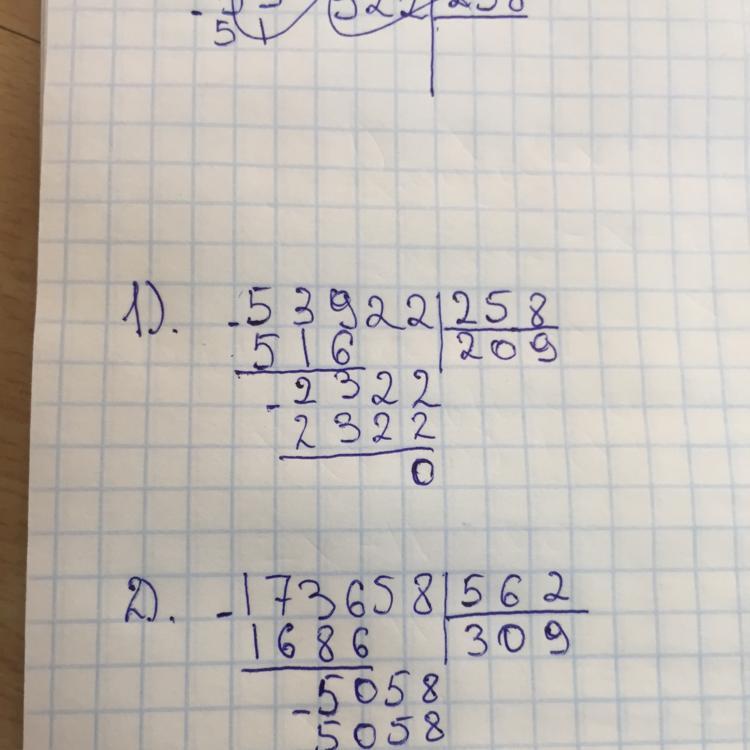 51
1). - 53922 | 258
516 | 209
- 2322
2322
0
2). - 173658 | 562
1686 | 309
- 5058
5058